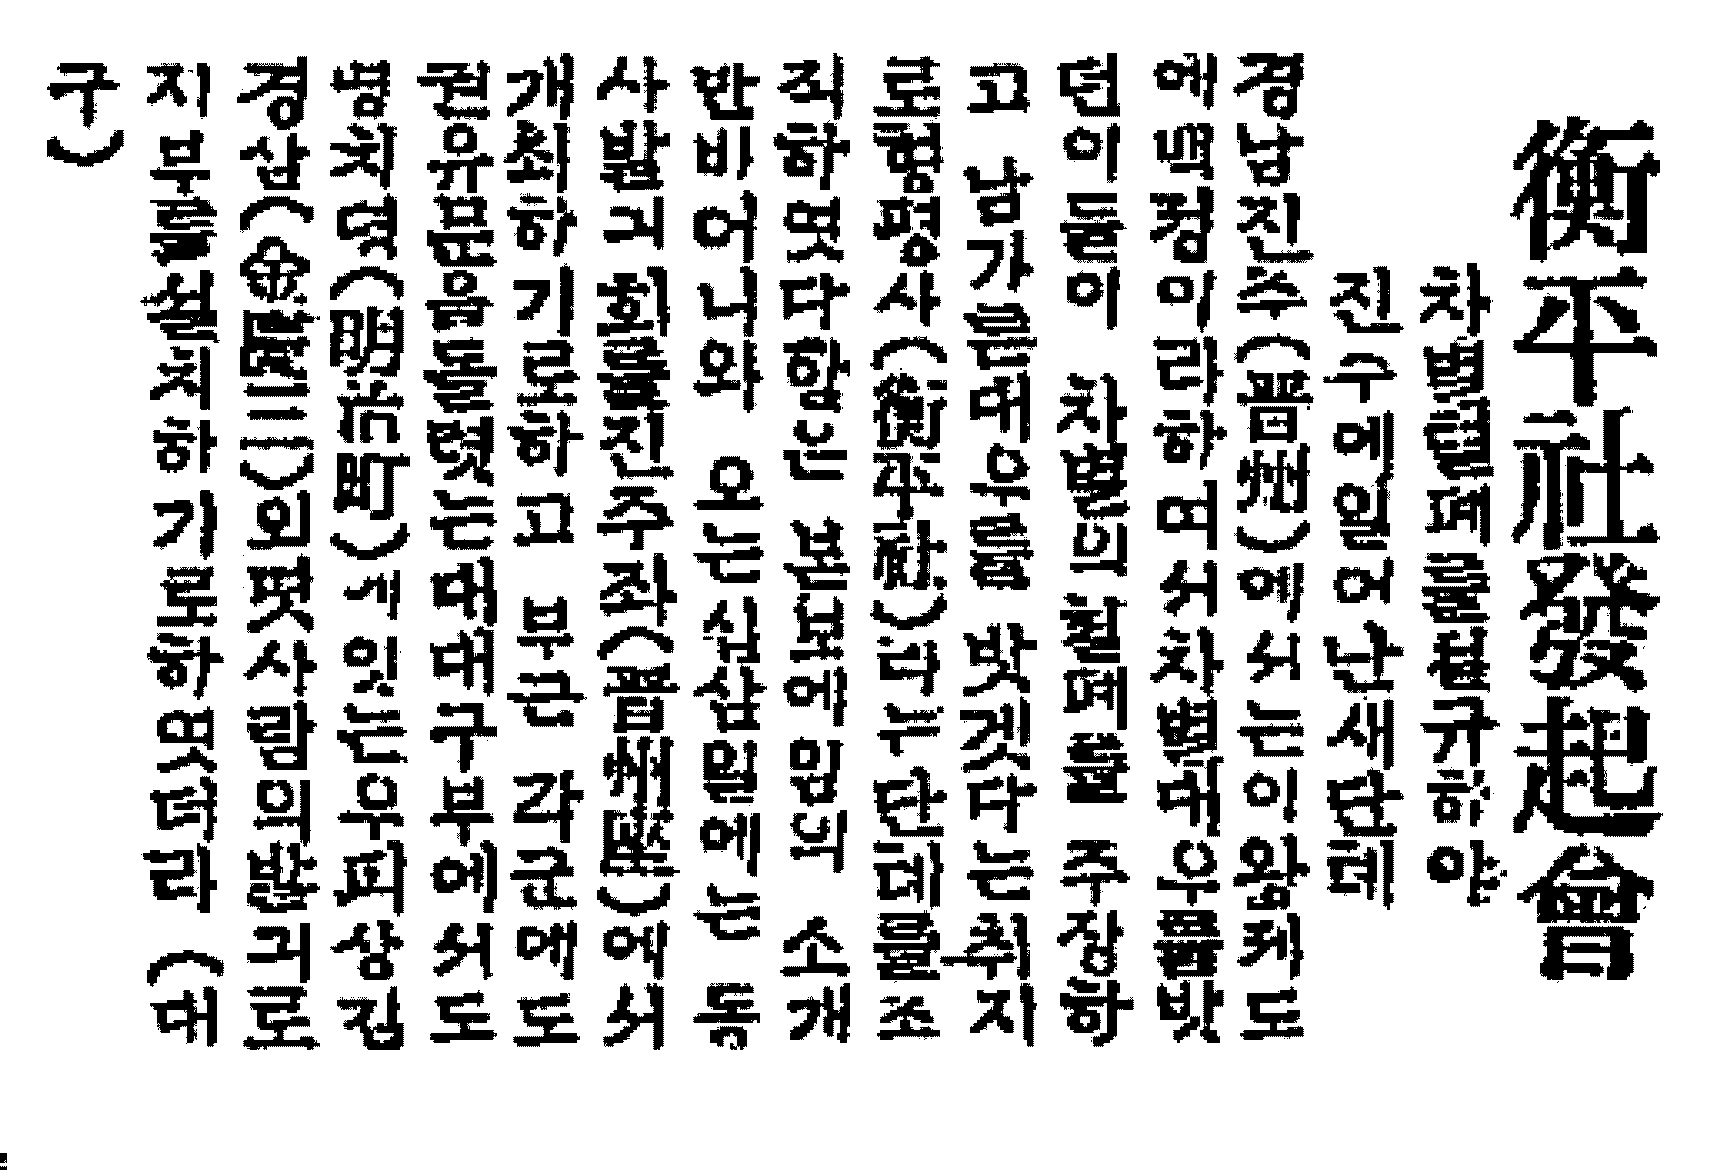 衡平社發起會
차별렬폐를 부규하야
진주에일어난새단톄
경남진주(晋州)에서는이왕커도
에백정이라하며서차별대우를밧
던이들이 차별뎍뎔폐를 주장하
고 남가튼대우를 밧겟다는취지
로형평사(衡平社)라는단톄를조
직하엿다함은 본보에임의 소개
반비어니와 오는십삼일에는 동
사발긔회를진주좌(晋州座)에서
개최하기로하고 부근 각군에도
권유문을돌렷는대대구부에서도
넘치일(明治町)에잇는우피상집
경삼(金慶三)외몃사람의발긔로
지부를설치하기로하얏더라 (대
구)